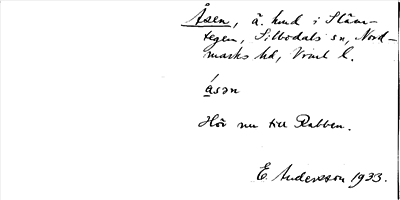 Åsen, ä. hmd i Stäm-
tegen, Sillbodals sn, Nord-
marks hd, Vrml l.
åsən
Hör nu till Rabben.
E. Andersson 1933.